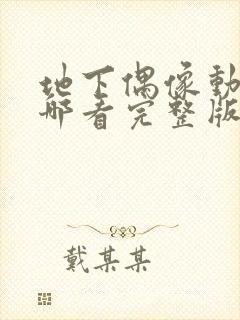 地下偶像動
哪看完整版
戴某某